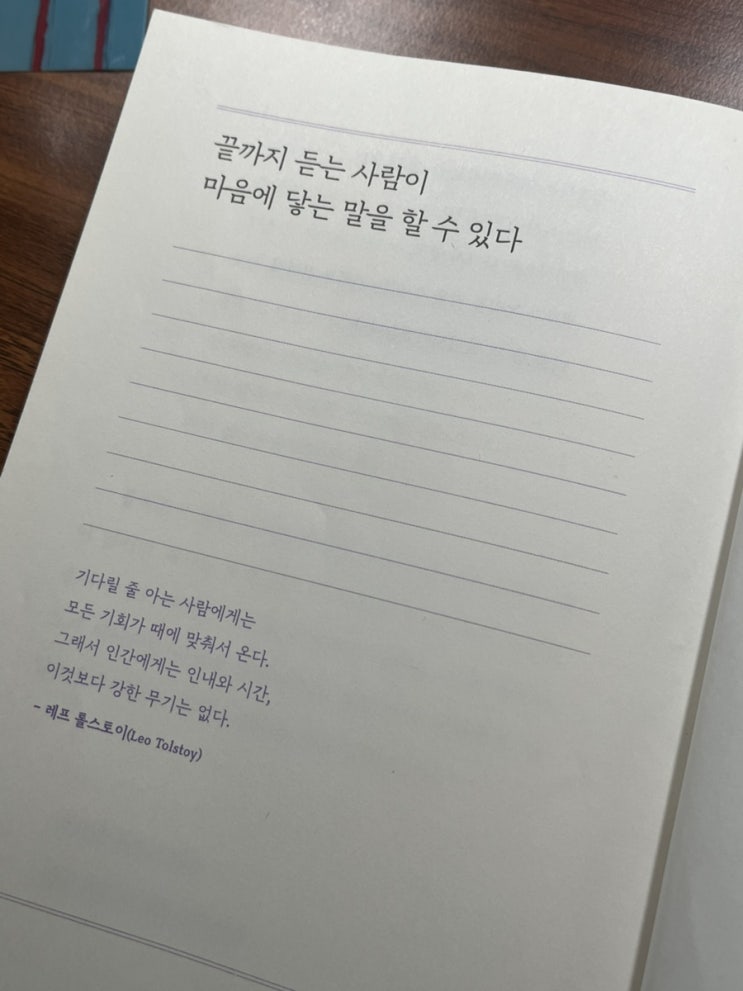 끝까지 듣는 사람이
마음에 닿는 말을 할 수 있다
기다릴 줄 아는 사람에게는
모든 기회가 때에 맞춰서 온다.
그래서 인간에게는 인내와 시간,
이것보다 강한 무기는 없다.
- 레프 톨스토이(Leo Tolstoy)